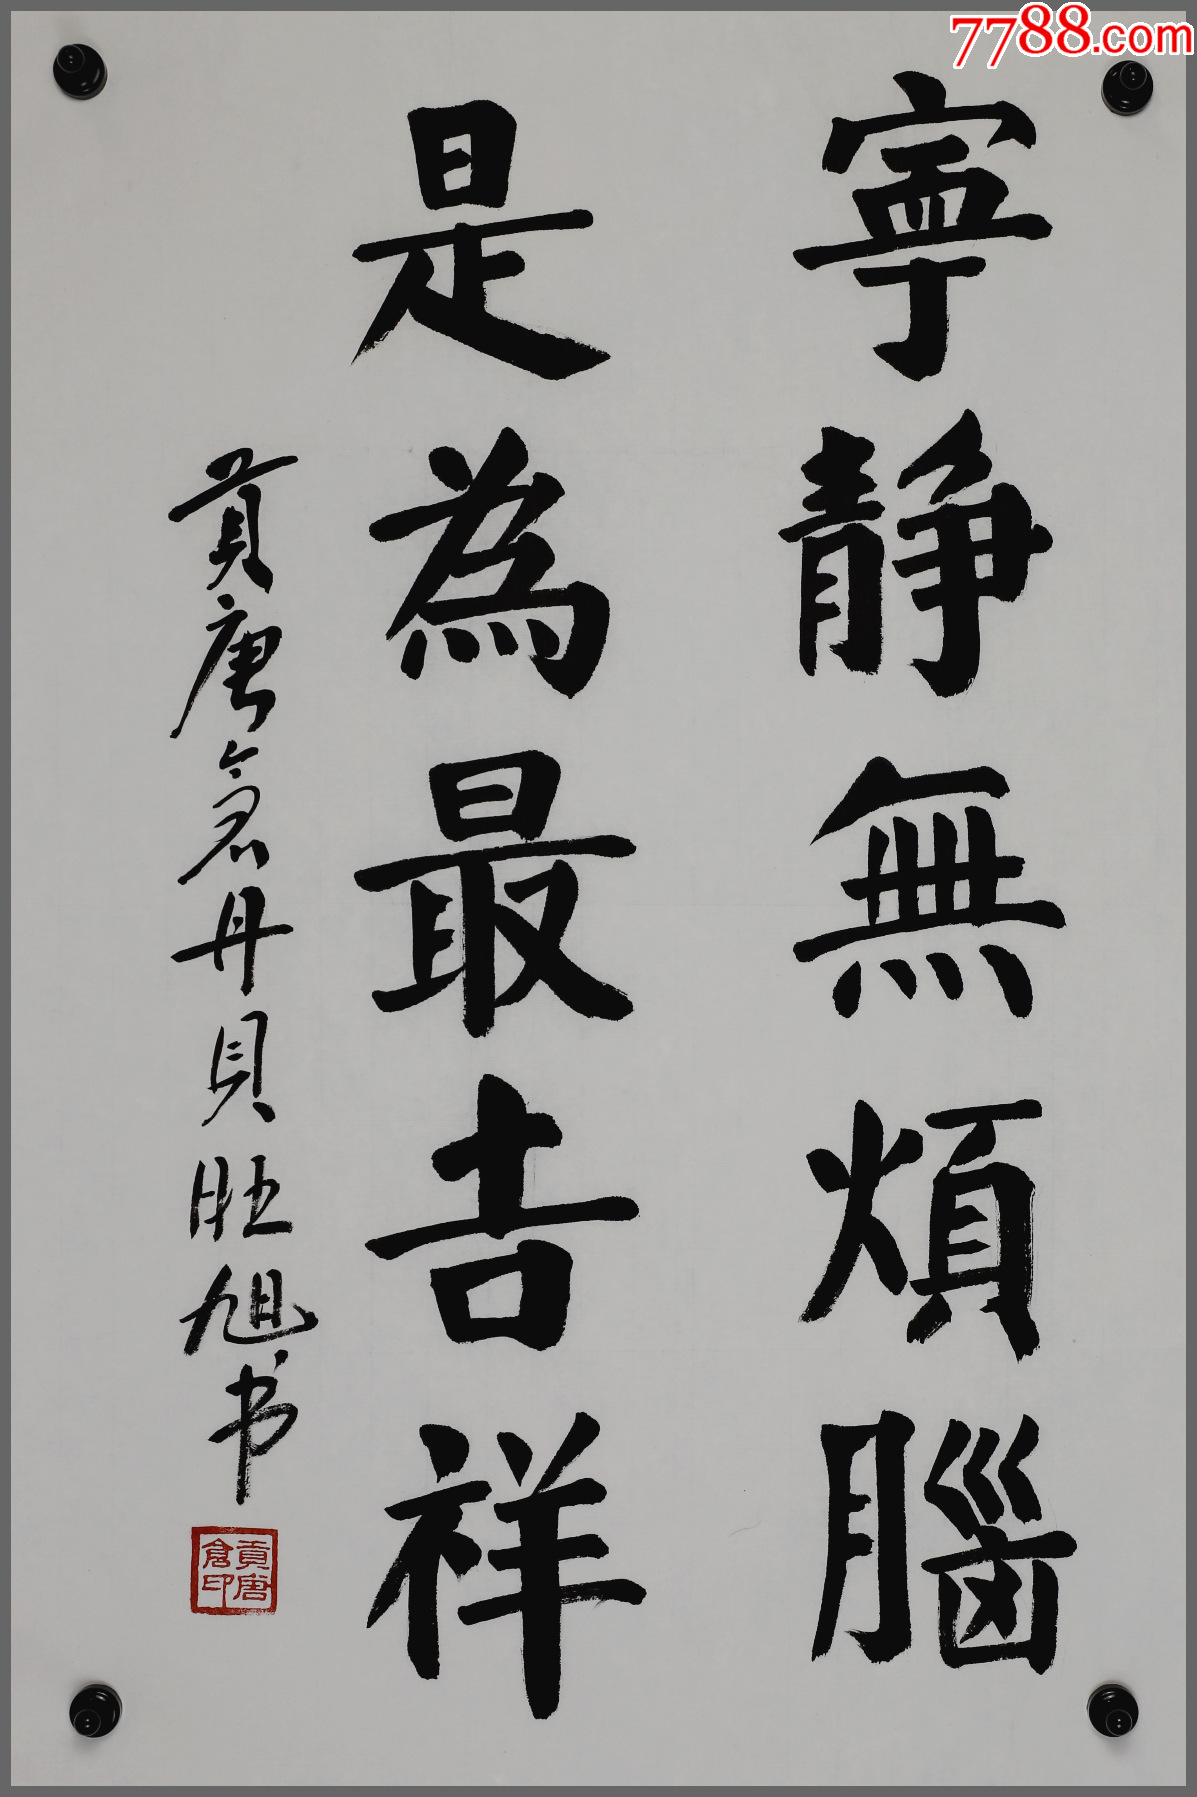 7788.com
寧静無煩腦
是為最吉祥
貢唐倉丹貝旺旭书
貢唐倉印